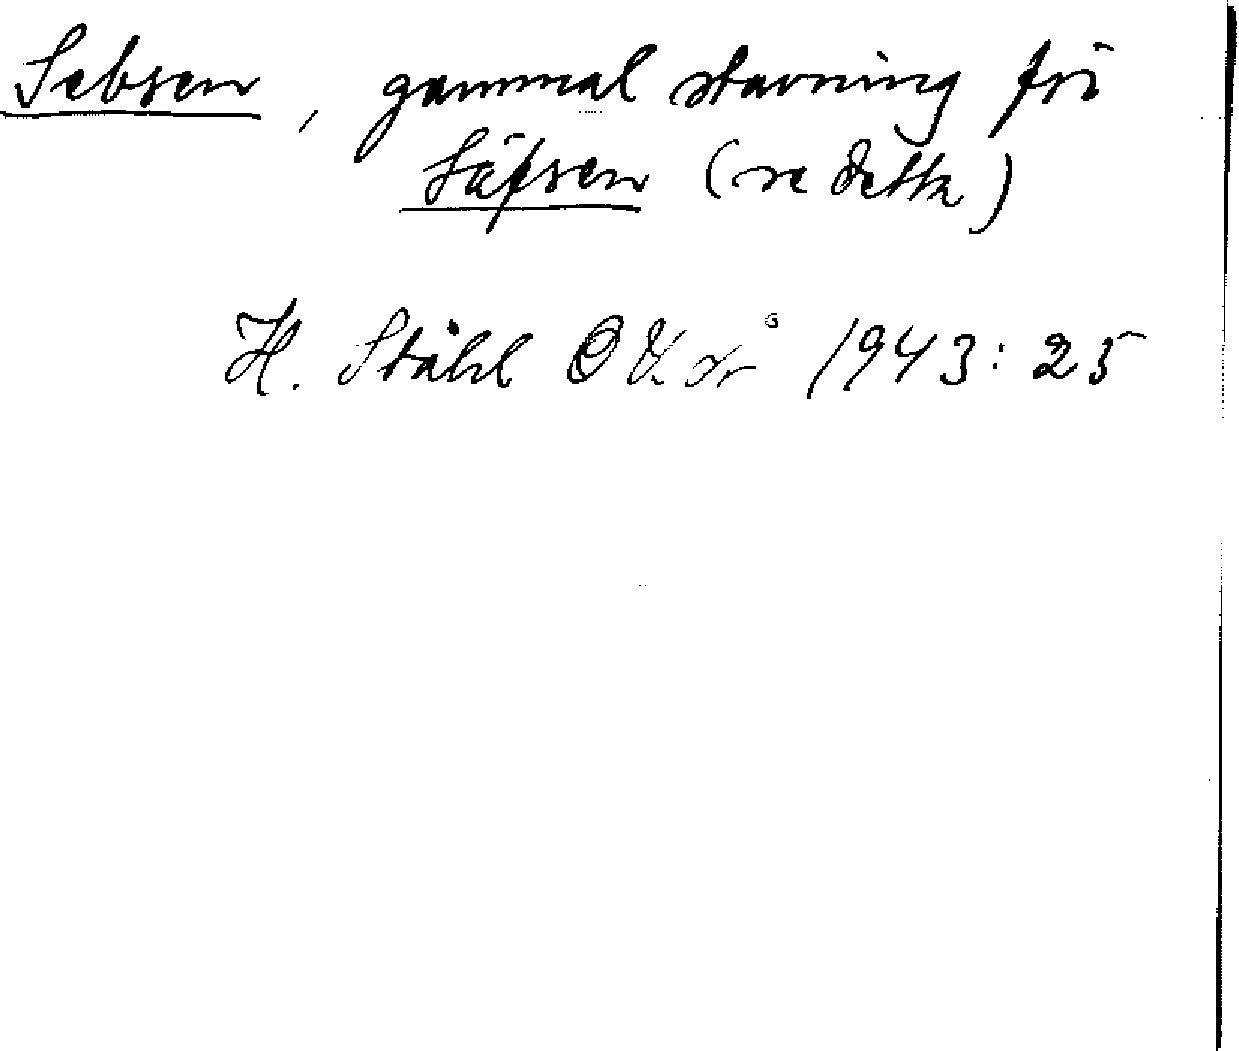 Sebsen, gammal stavning för
Säfsen (se detta)
H. Ståhl 1943: 25